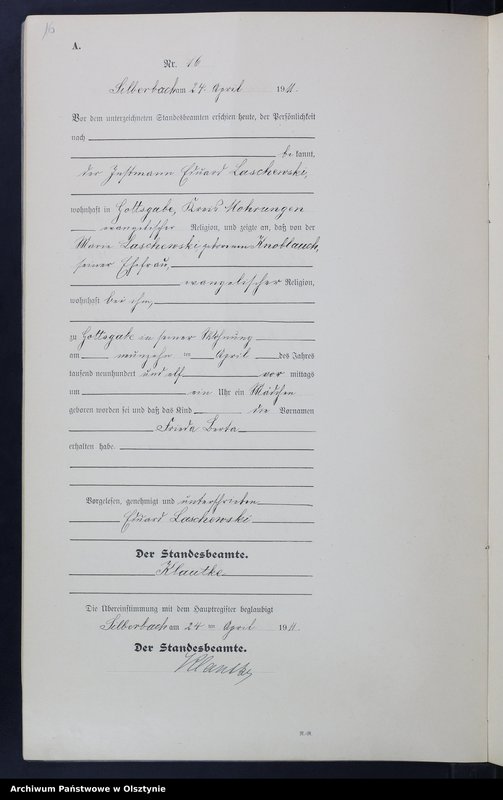 16
A.
Nr. 16
Silberbach am 24. April 1911.
Vor dem unterzeichneten Standesbeamten erschien heute, der Persönlichkeit
nach
bekannt,
der Instmann Eduard Laschewski,
wohnhaft in Gottsgabe, Kreis Mohrungen
evangelischer Religion, und zeigte an, daß von der
Marie Laschewski geborenen Knoblauch,
seiner Ehefrau,
evangelischer Religion,
wohnhaft bei ihm,
zu Gottsgabe in seiner Wohnung
am neunzehn ten April des Jahres
tausend neunhundert und elf vor mittags
um ein Uhr ein Mädchen
geboren worden sei und daß das Kind die Vornamen
Frieda Berta
erhalten habe.
Vorgelesen, genehmigt und unterschrieben
Eduard Laschewski
Der Standesbeamte.
Klautke
Die Übereinstimmung mit dem Hauptregister beglaubigt
Silberbach am 24 ten April 1911.
Der Standesbeamte.
Klautke
Archiwum Państwowe w Olsztynie